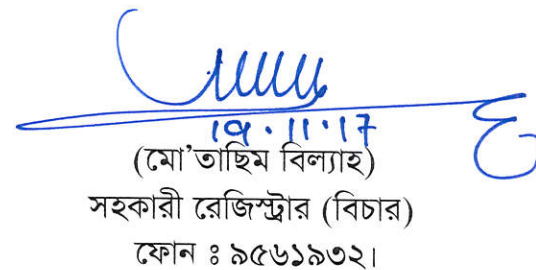 19.11.17
(মো'তাছিম বিল্যাহ)
সহকারী রেজিস্ট্রার (বিচার)
ফোন ঃ ৯৫৬১৯৩২।